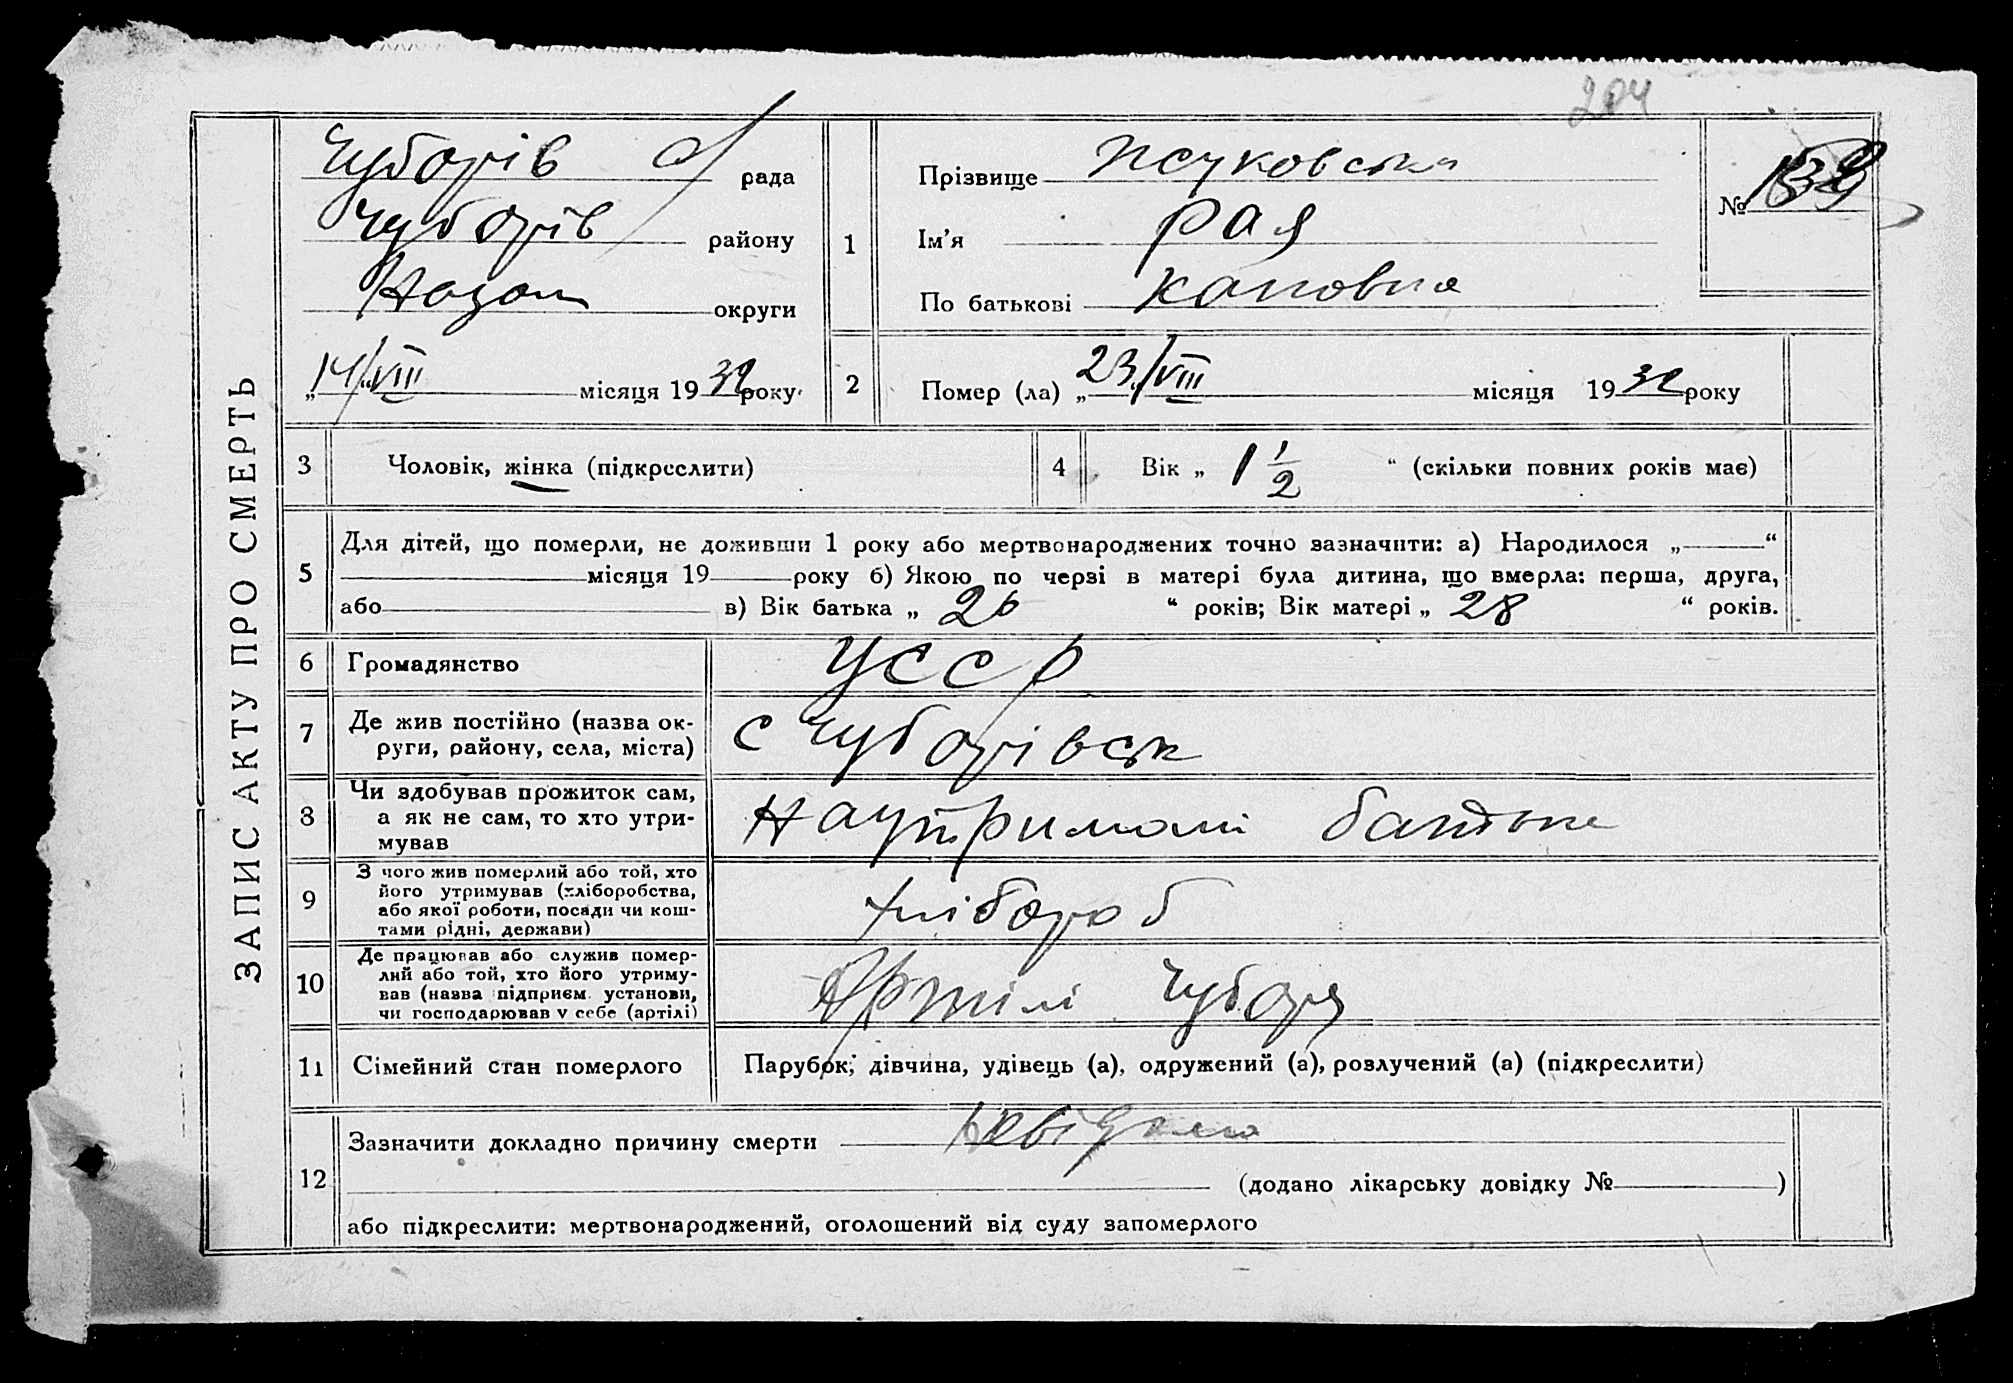 204
ЗАПИС АКТУ ПРО СМЕРТЬ
Чуборів с/рада
Чуборів району
округи
„14/VIII місяця 1932 року.
1
Прізвище Жуковська
Ім'я Рая
По батькові
№
2 Помер (ла) „23/VIII місяця 1932 року
3 Чоловік, жінка (підкреслити)
4 Вік „ 1 1/2 “ (скільки повних років має)
5 Для дітей, що померли, не доживши 1 року або мертвонароджених точно зазначити: а) Народилося „ “
місяця 19 року б) Якою по черзі в матері була дитина, що вмерла: перша, друга,
або в) Вік батька „ 26 “ років; Вік матері „ 28 “ років.
6 Громадянство УССР
7 Де жив постійно (назва ок-
руги, району, села, міста) с Чуборівськ
8 Чи здобував прожиток сам,
а як не сам, то хто утри-
мував На утримані батька
9 З чого жив померлий або той, хто
його утримував (хліборобства,
або якої роботи, посади чи кош-
тами рідні, держави) хлібороб
10 Де працював або служив помер-
лий або той, хто його утриму-
вав (назва підприєм. установи,
чи господарював у себе (артілі) Артілі
11 Сімейний стан померлого Парубок, дівчина, удівець (а), одружений (а), розлучений (а) (підкреслити)
12 Зазначити докладно причину смерти невідомо
(додано лікарську довідку № )
або підкреслити: мертвонароджений, оголошений від суду запомерлого